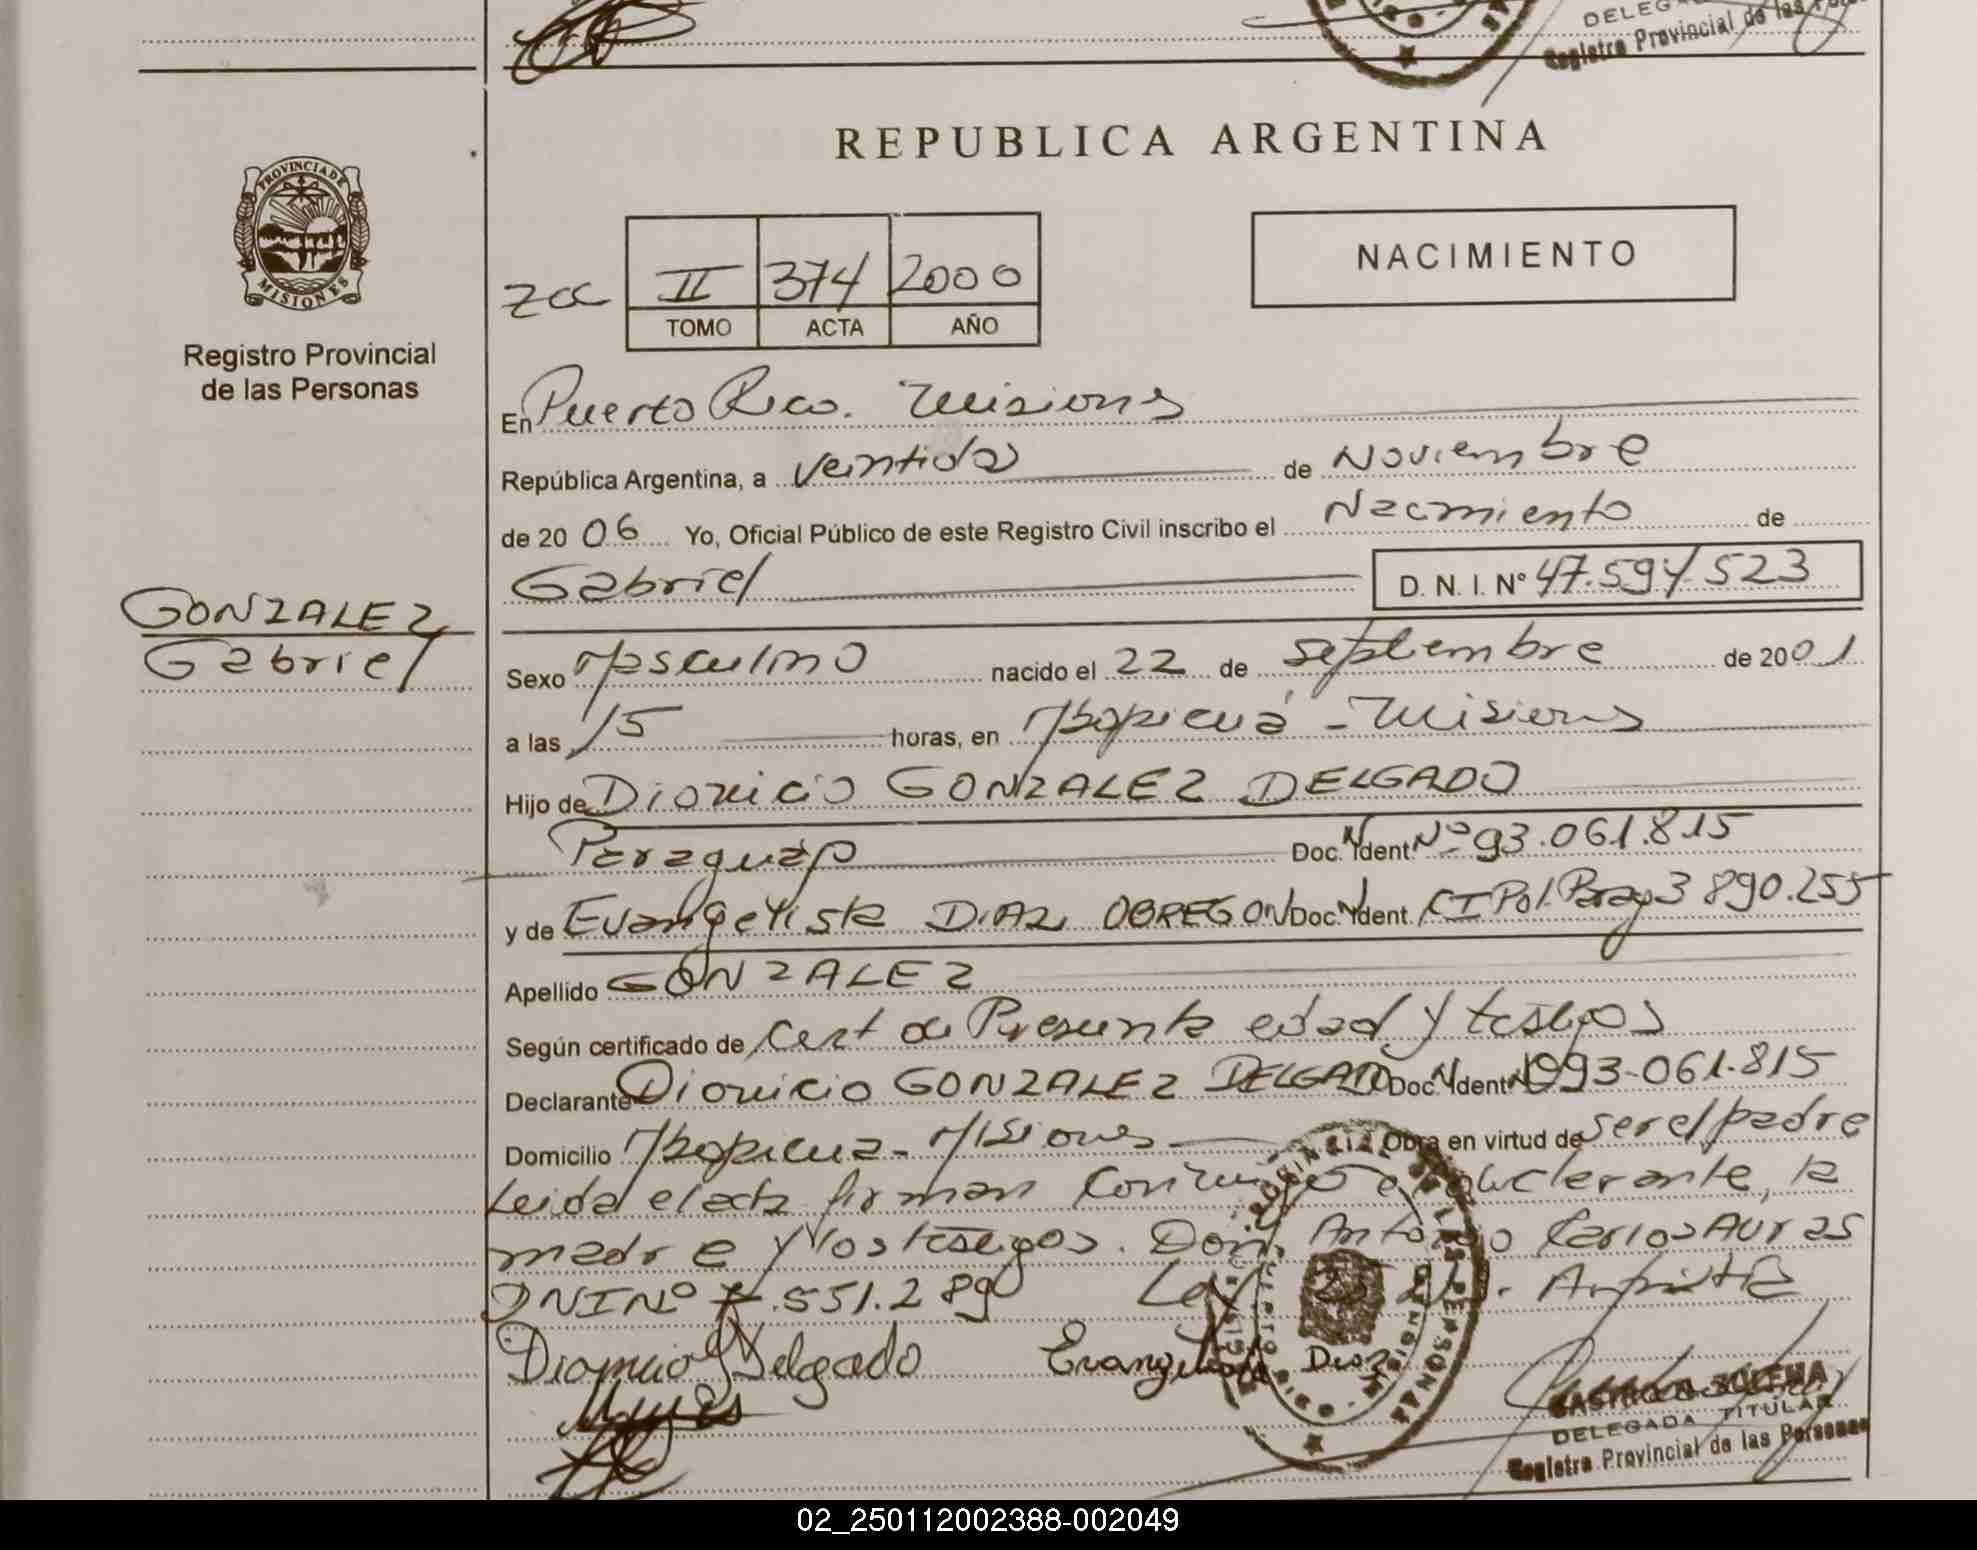 DELEG
Registro Provincial de las
REPUBLICA ARGENTINA
PROVINCIA DE MISIONES
Registro Provincial
de las Personas
NACIMIENTO
II 374 2000
TOMO ACTA AÑO
En Puerto Rico. Misiones
República Argentina, a veintidos de Noviembre
de 20 06 Yo, Oficial Público de este Registro Civil inscribo el Nacimiento de
Gabriel D. N. I. N° 47.594.523
GONZALEZ
Gabriel
Sexo Masculino nacido el 22 de septiembre de 2001
a las 15 horas, en Mbopicuá - Misiones
Hijo de Dionicio GONZALEZ DELGADO
Paraguay Doc. Ident. Nº 93.061.815
y de Evangelista DIAZ OBREGON Doc. Ident. CI Pol. Parag 3 890.255
Apellido GONZALEZ
Según certificado de Cert de Presunta edad y testigos
Declarante Dionicio GONZALEZ DELGADO Doc. Ident. Nº 93.061.815
Domicilio Mbopicua - Misiones Obra en virtud de ser el padre
Leida el acta firman conmigo el declarante, la
madre y los testigos. Don Antonio Carlos AURAS
DNI Nº 7.551.289 Ley
Dionicio Delgado Evangelista Diaz
CASTRO ZULEMA
DELEGADA TITULAR
Registro Provincial de las Personas
02_250112002388-002049